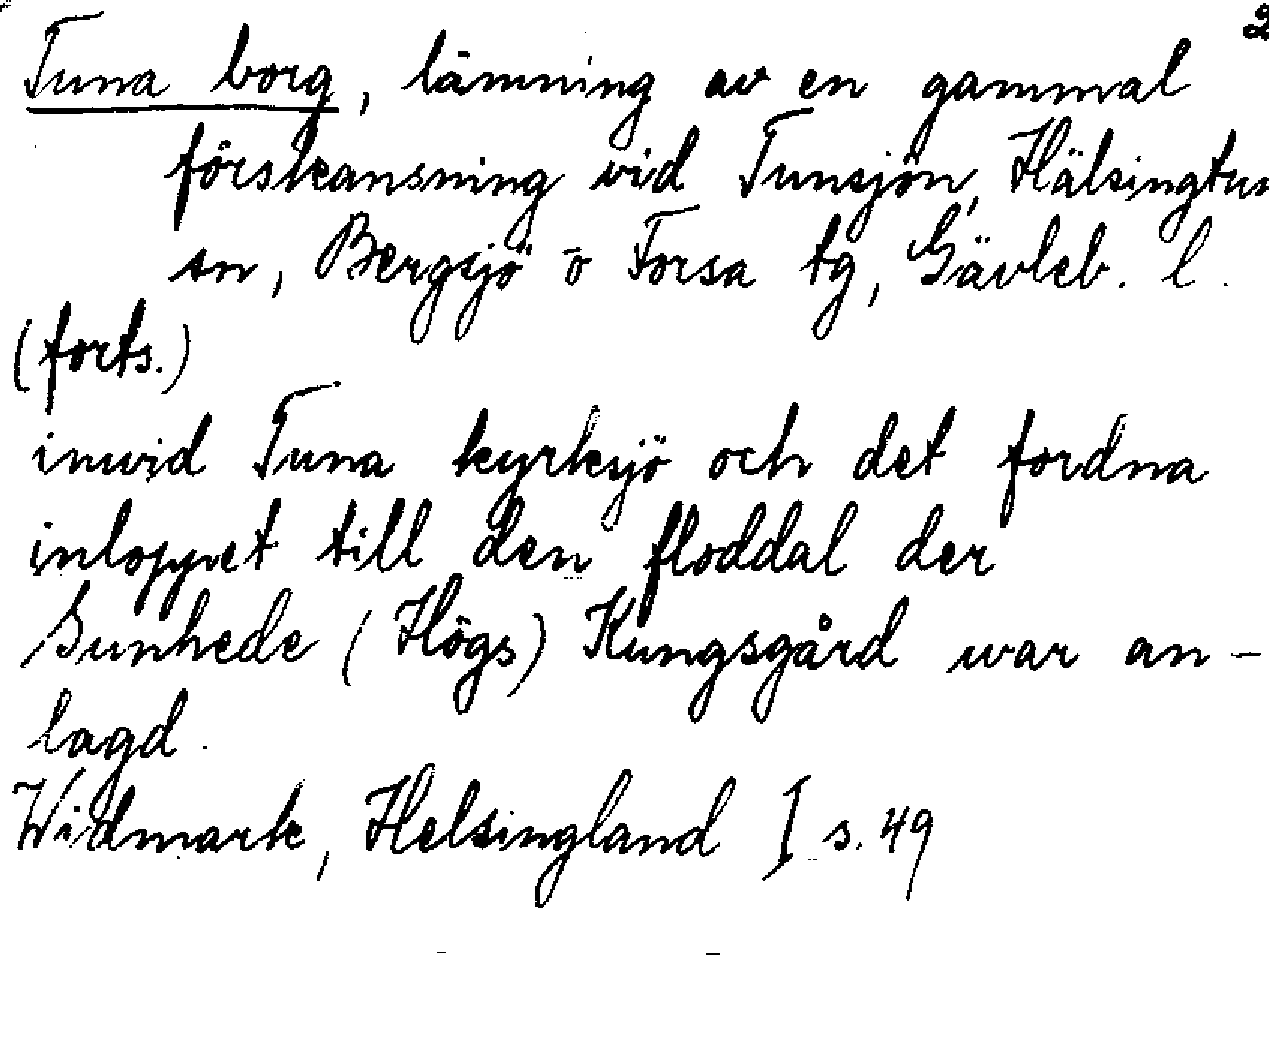 2
Tuna borg, lämning av en gammal
förskansning vid Tunsjön, Hälsingtun
sn, Bergsjö o Forsa tg, Gävleb. l.
(forts.)
invid Tuna kyrksjö och det fordna
inloppet till den floddal der
Sunhede (Högs) Kungsgård war an-
lagd.
Widmark, Helsingland I s. 49